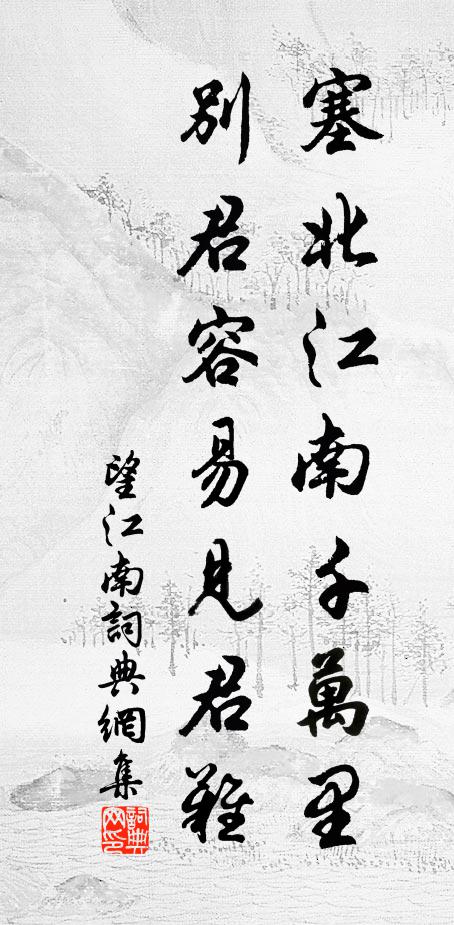 塞北江南千萬里
別君容易見君難
望江南詞典網集
詞典網印